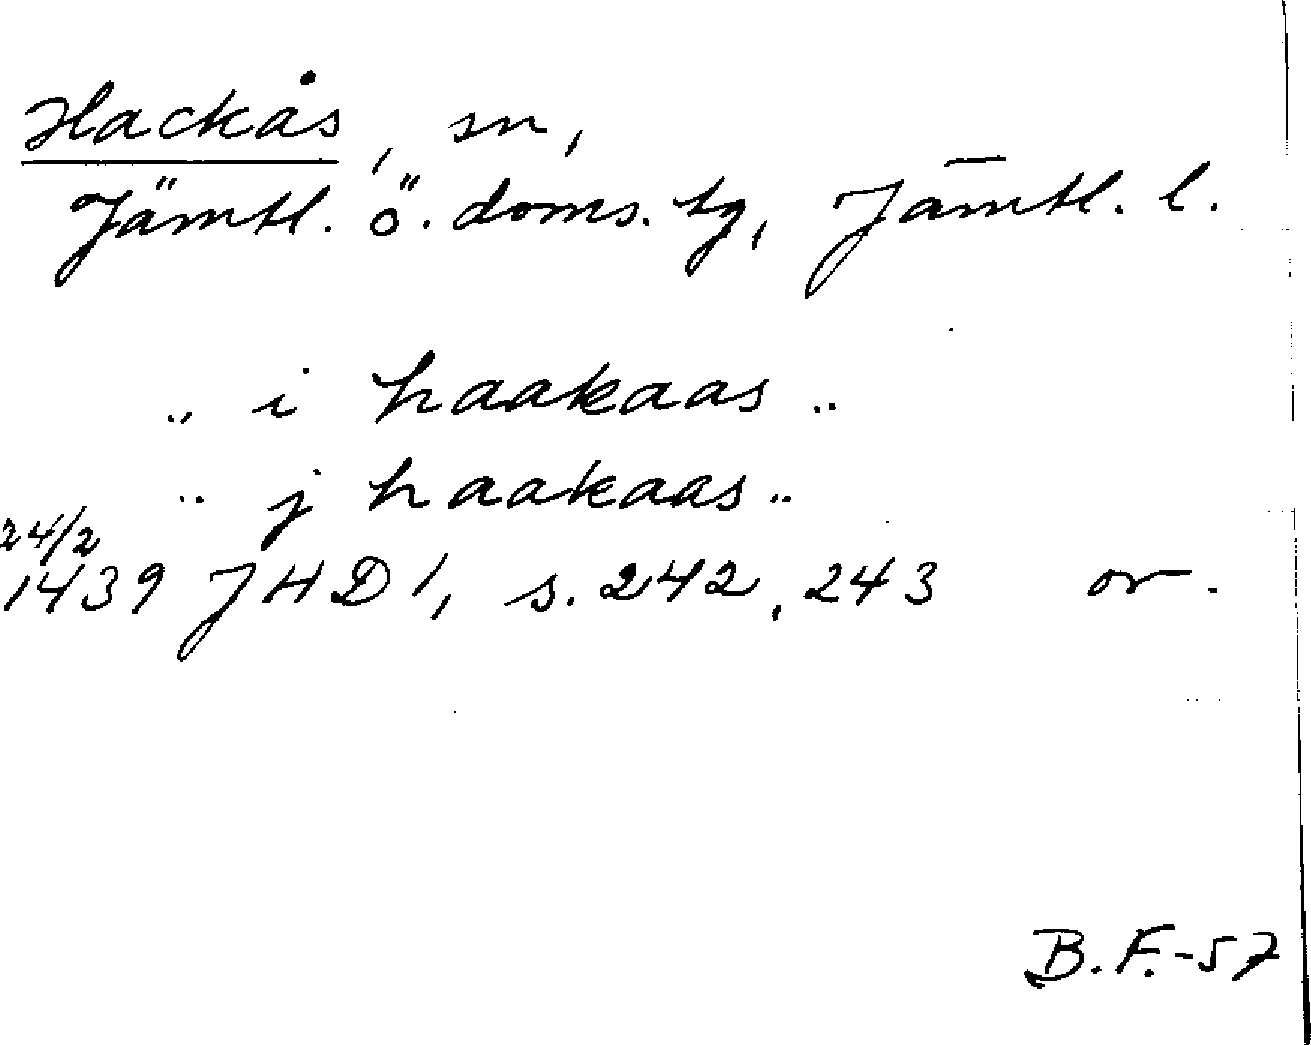 Hackås, sn,
Jämtl. ö. doms. tg, Jämtl. l.
„ i haakaas „
„ j haakaas „
24/2
1439 JHD 1, s. 242, 243 or.
B.F.-57